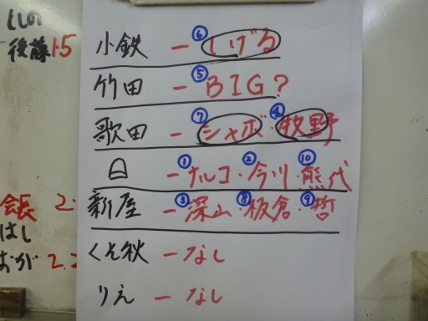 ししの
後藤 1.5
小鉄 － ⑥ しげる
竹田 － ⑤ BIG?
歌田 － ⑦ シャボ・④ 牧野
日 － ① ナルコ・② 今川・⑩ 熊代
新屋 － ③ 深山・⑧ 板倉・⑨ 哲
会長 2.
はし
くそ秋 － なし
おが 2.2
りえ － なし